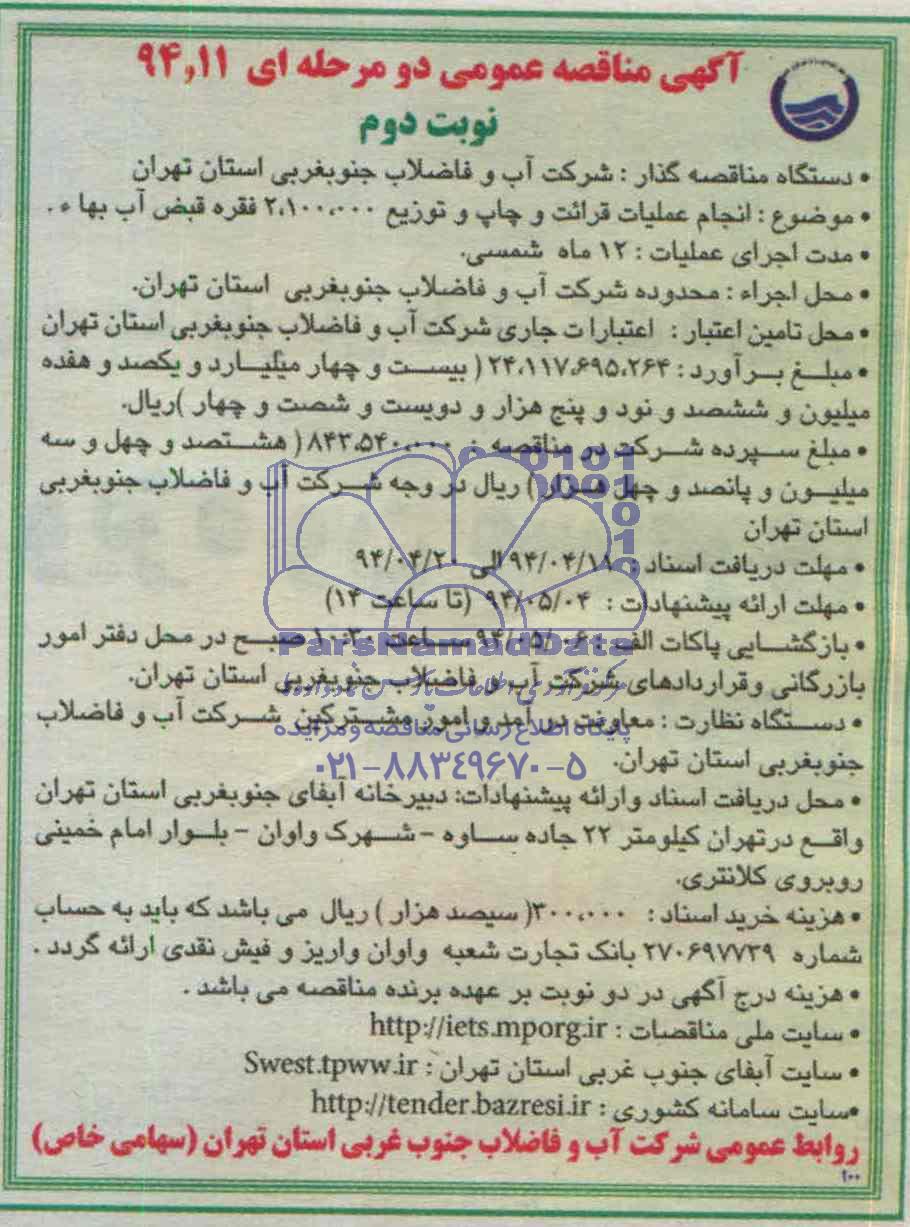 آگهی مناقصه عمومی دو مرحله ای ۹۴,۱۱
نوبت دوم
• دستگاه مناقصه گذار : شرکت آب و فاضلاب جنوبغربی استان تهران
• موضوع : انجام عملیات قرائت و چاپ و توزیع ۲،۱۰۰،۰۰۰ فقره قبض آب بهاء.
• مدت اجرای عملیات : ۱۲ ماه شمسی.
• محل اجراء : محدوده شرکت آب و فاضلاب جنوبغربی استان تهران.
• محل تامین اعتبار : اعتبارات جاری شرکت آب و فاضلاب جنوبغربی استان تهران
• مبلغ برآورد : ۲۴،۱۱۷،۶۹۵،۲۶۴ ( بیست و چهار میلیارد و یکصد و هفده
میلیون و ششصد و نود و پنج هزار و دویست و شصت و چهار )ریال.
• مبلغ سپرده شرکت در مناقصه : ۸۴۳،۵۴۰،۰۰۰ ( هشتصد و چهل و سه
میلیون و پانصد و چهل هزار ) ریال در وجه شرکت آب و فاضلاب جنوبغربی
استان تهران
• مهلت دریافت اسناد : ۹۴/۰۴/۱۸ الی ۹۴/۰۴/۲۰
• مهلت ارائه پیشنهادات : ۹۴/۰۵/۰۴ (تا ساعت ۱۴)
• بازگشایی پاکات الف : ۹۴/۰۵/۰۶ ساعت ۱۰:۳۰ صبح در محل دفتر امور
ParsNamadData
بازرگانی وقراردادهای شرکت آب و فاضلاب جنوبغربی استان تهران.
• دستگاه نظارت : معاونت درآمد و امور مشترکین شرکت آب و فاضلاب
پایگاه اطلاع رسانی مناقصه و مزایده
جنوبغربی استان تهران.
۰۲۱-۸۸۳۴۹۶۷۰-۵
• محل دریافت اسناد وارائه پیشنهادات: دبیرخانه آبفای جنوبغربی استان تهران
واقع درتهران کیلومتر ۲۲ جاده ساوه - شهرک واوان - بلوار امام خمینی
روبروی کلانتری.
• هزینه خرید اسناد : ۳۰۰،۰۰۰( سیصد هزار ) ریال می باشد که باید به حساب
شماره ۲۷۰۶۹۷۷۳۹ بانک تجارت شعبه واوان واریز و فیش نقدی ارائه گردد .
• هزینه درج آگهی در دو نوبت بر عهده برنده مناقصه می باشد .
• سایت ملی مناقصات : http://iets.mporg.ir
• سایت آبفای جنوب غربی استان تهران : Swest.tpww.ir
•سایت سامانه کشوری : http://tender.bazresi.ir
روابط عمومی شرکت آب و فاضلاب جنوب غربی استان تهران (سهامی خاص)
۱۰۰